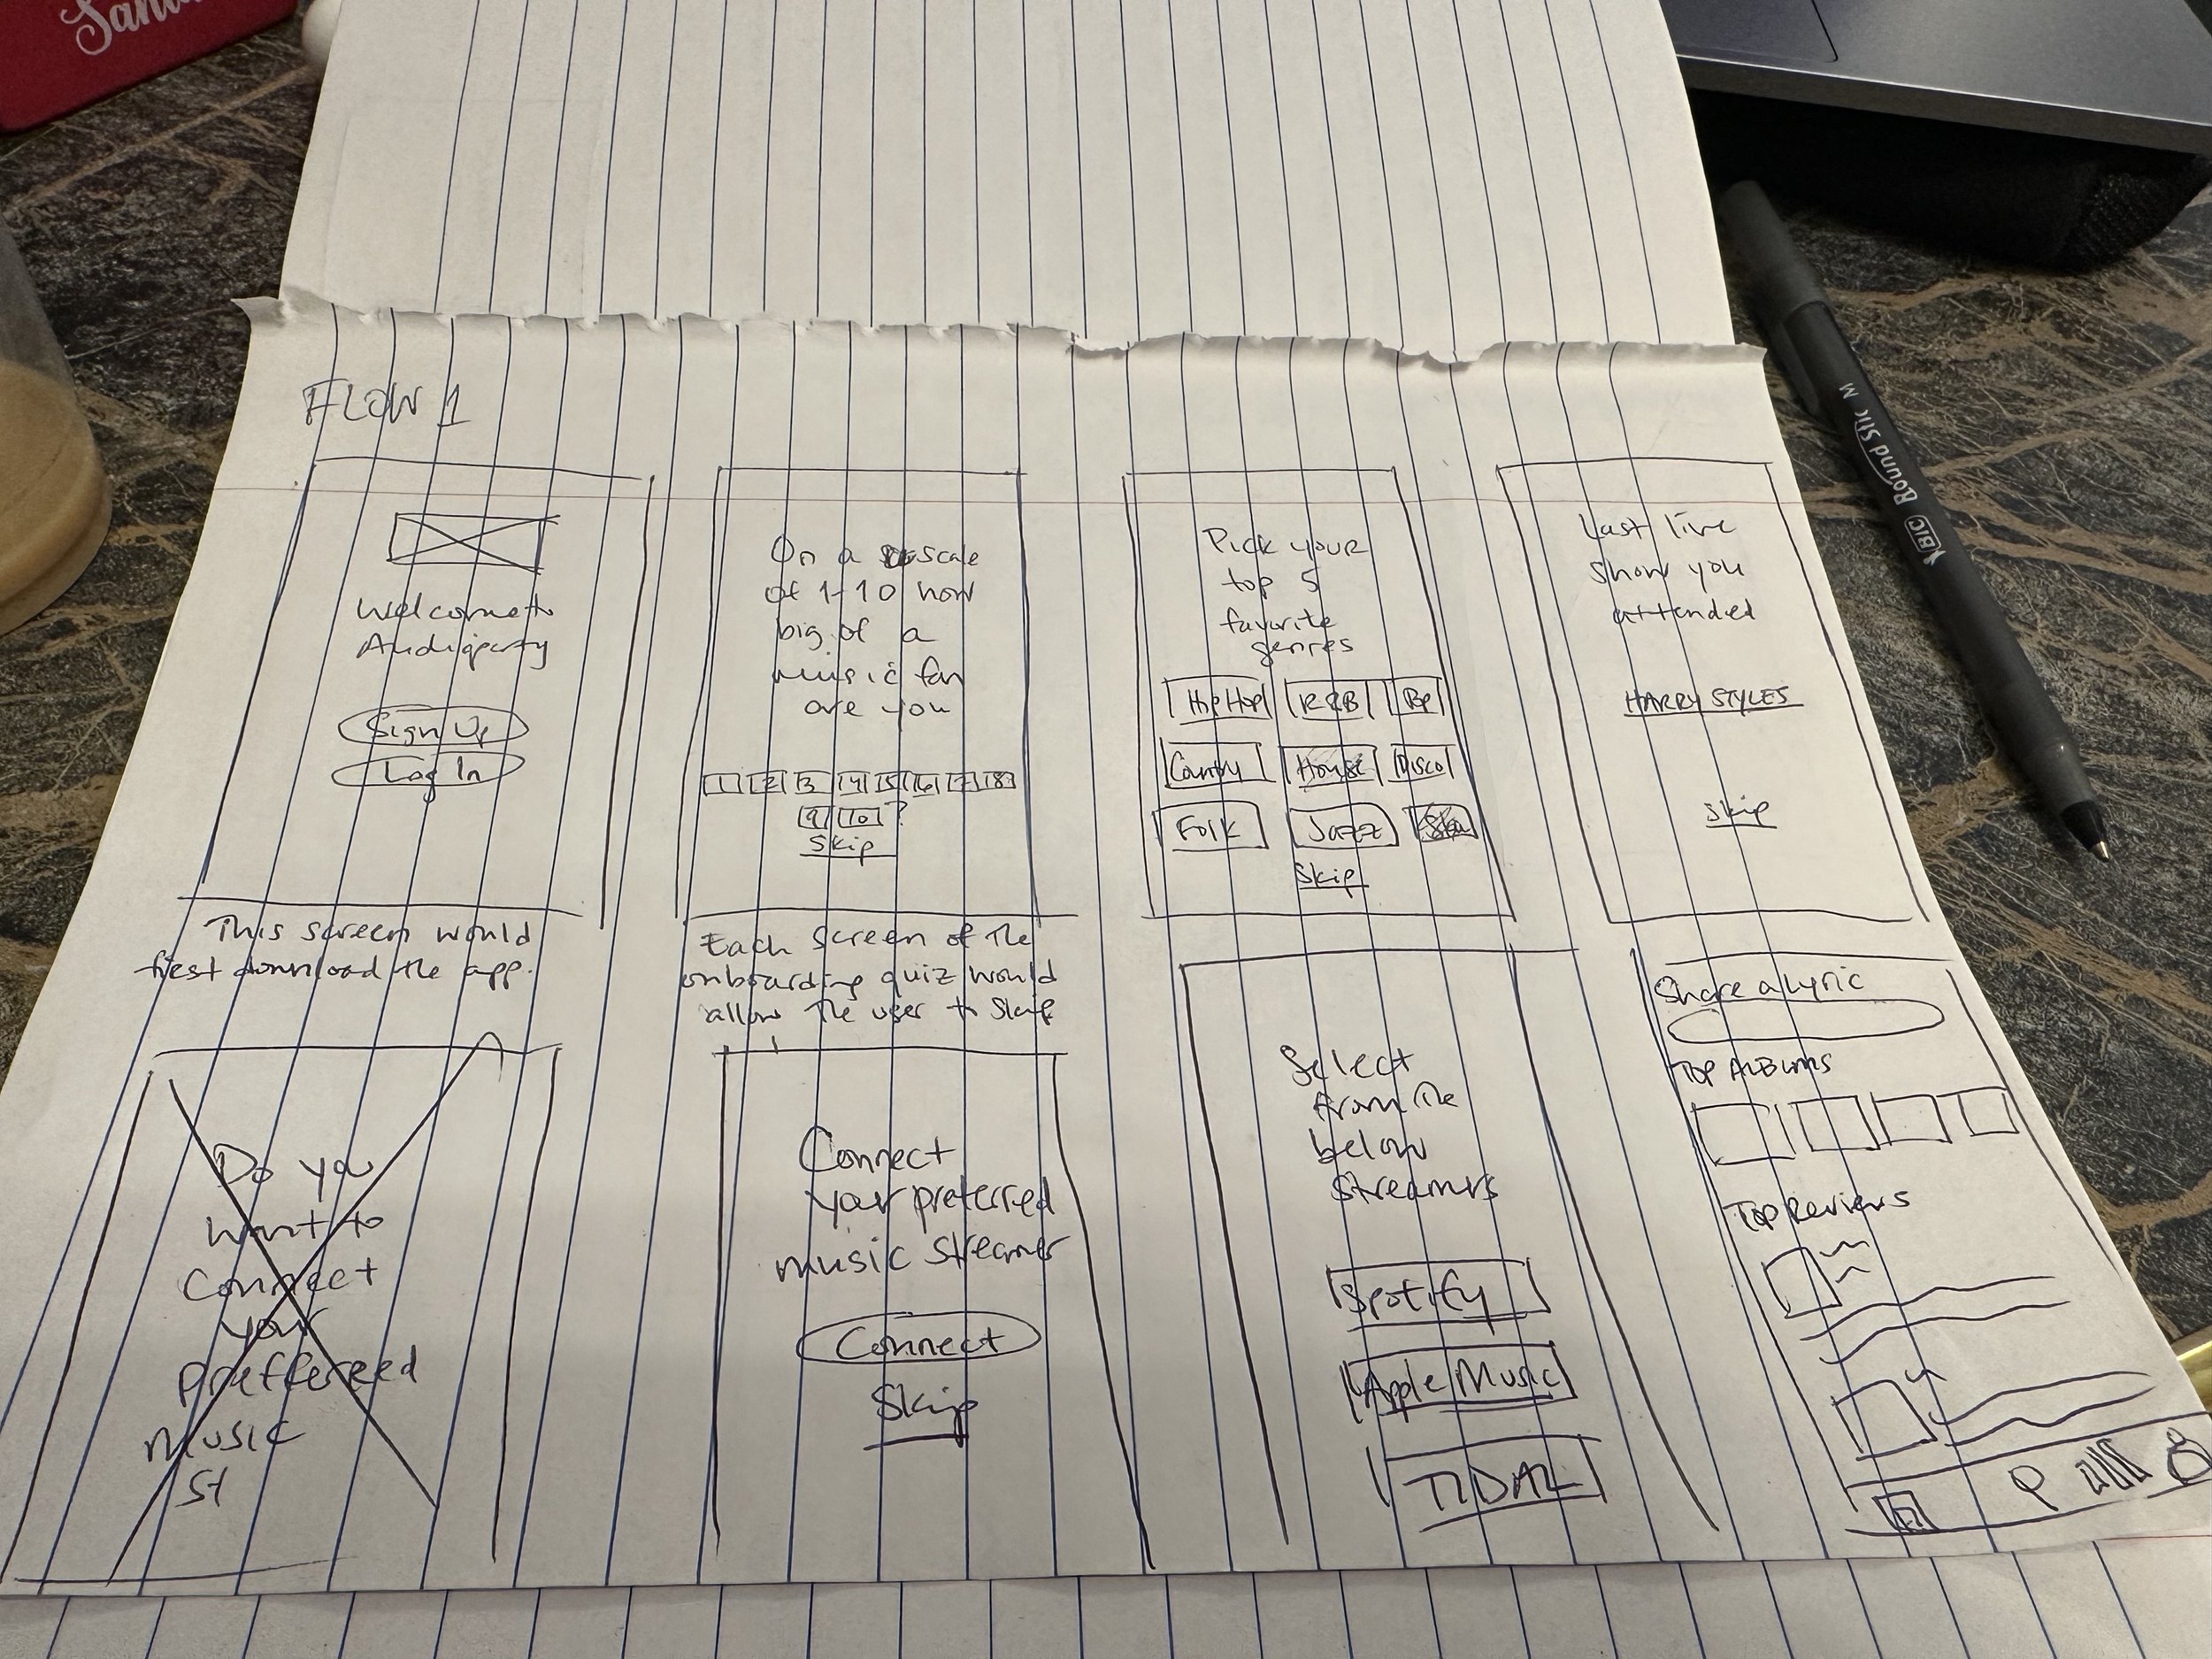 FLOW 1
Welcome to
Audioparty
Sign Up
Log In
This screen would
first download the app.
On a scale
of 1-10 how
big of a
music fan
are you
1 2 3 4 5 6 7 8
9 10 ?
Skip
Each screen of the
onboarding quiz would
allow the user to skip
Pick your
top 5
favorite
genres
Hip Hop R&B Pop
Country House Disco
Folk Jazz
Skip
Last live
show you
attended
HARRY STYLES
Skip
Do you
want to
Connect
your
preffereed
music
st
Connect
your preferred
music streamer
Connect
Skip
Select
from the
below
streamers
Spotify
Apple Music
TIDAL
Share a Lyric
TOP ALBUMS
TOP Reviews
BIC Round Stic M